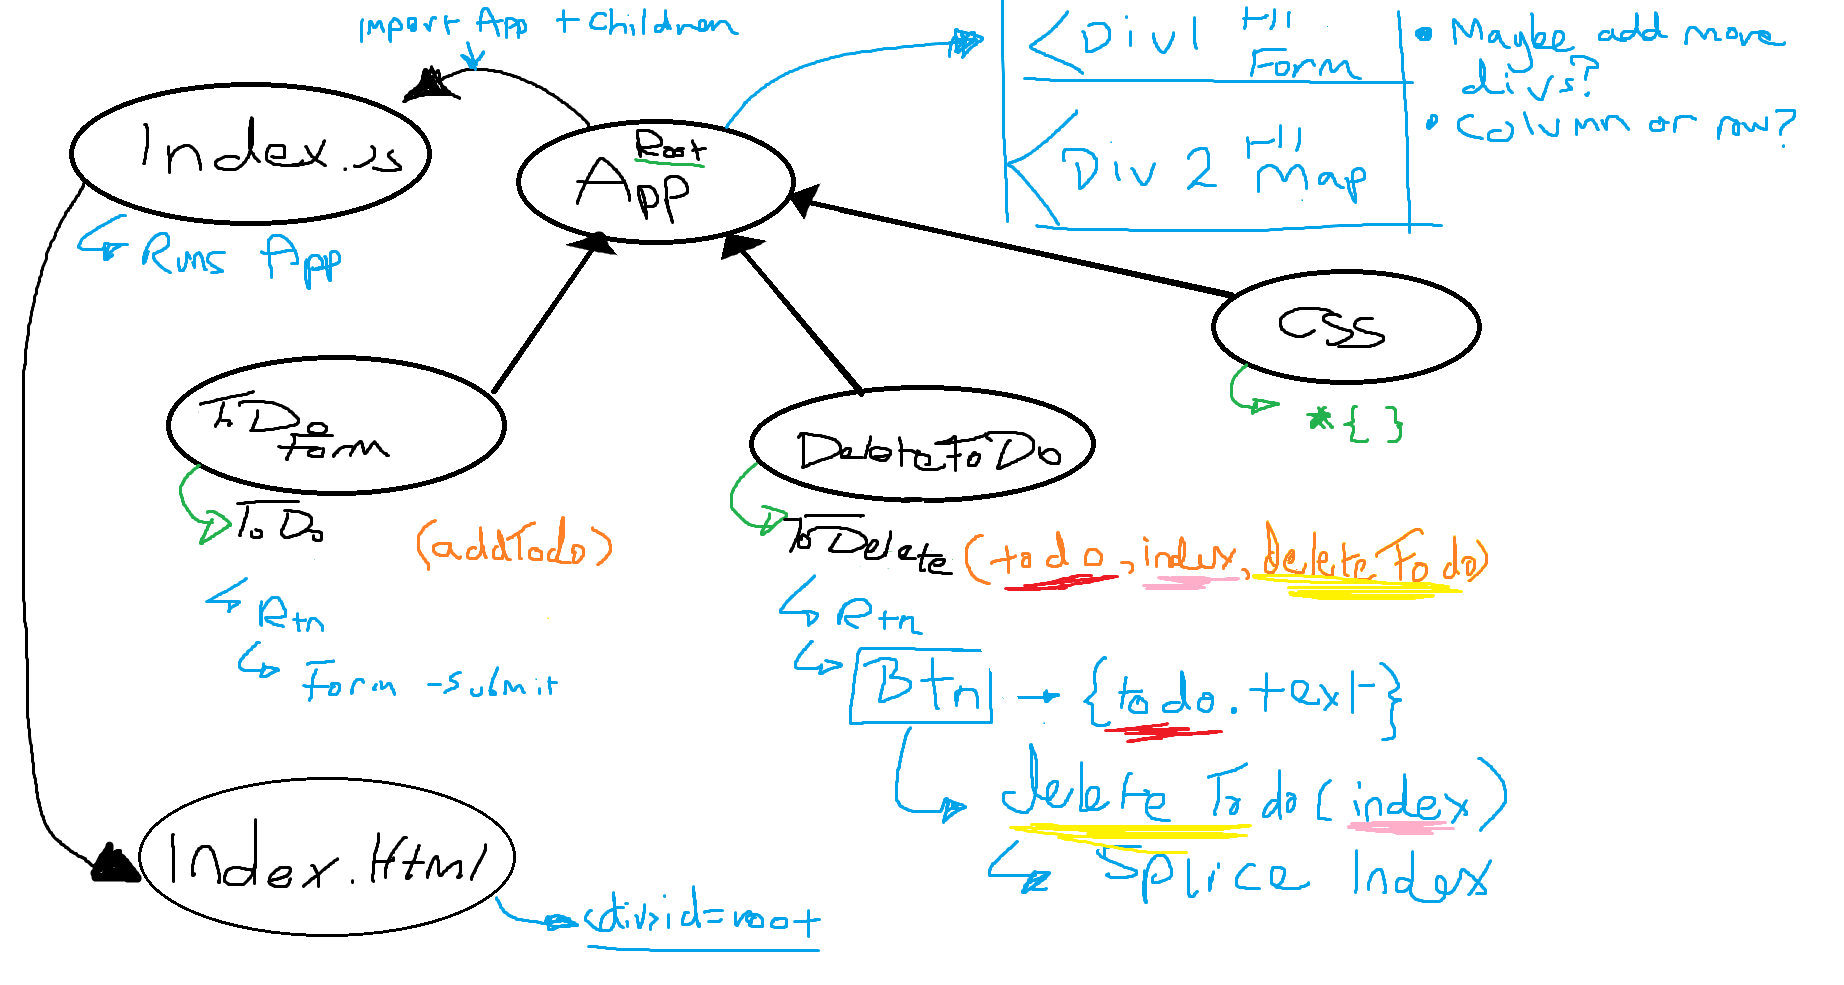 Import App + Children
Index.js
Runs App
Root
App
<Div1 H1
Form
<Div 2 H1
Map
• Maybe add more
divs?
• Column or row?
CSS
*{ }
ToDo
Form
ToDo
(addTodo)
Rtn
Form -submit
DeleteToDo
ToDelete (todo, index, deleteTodo)
Rtn
Btn → {todo.text}
deleteTodo(index)
Splice Index
Index.Html
<div>id=root